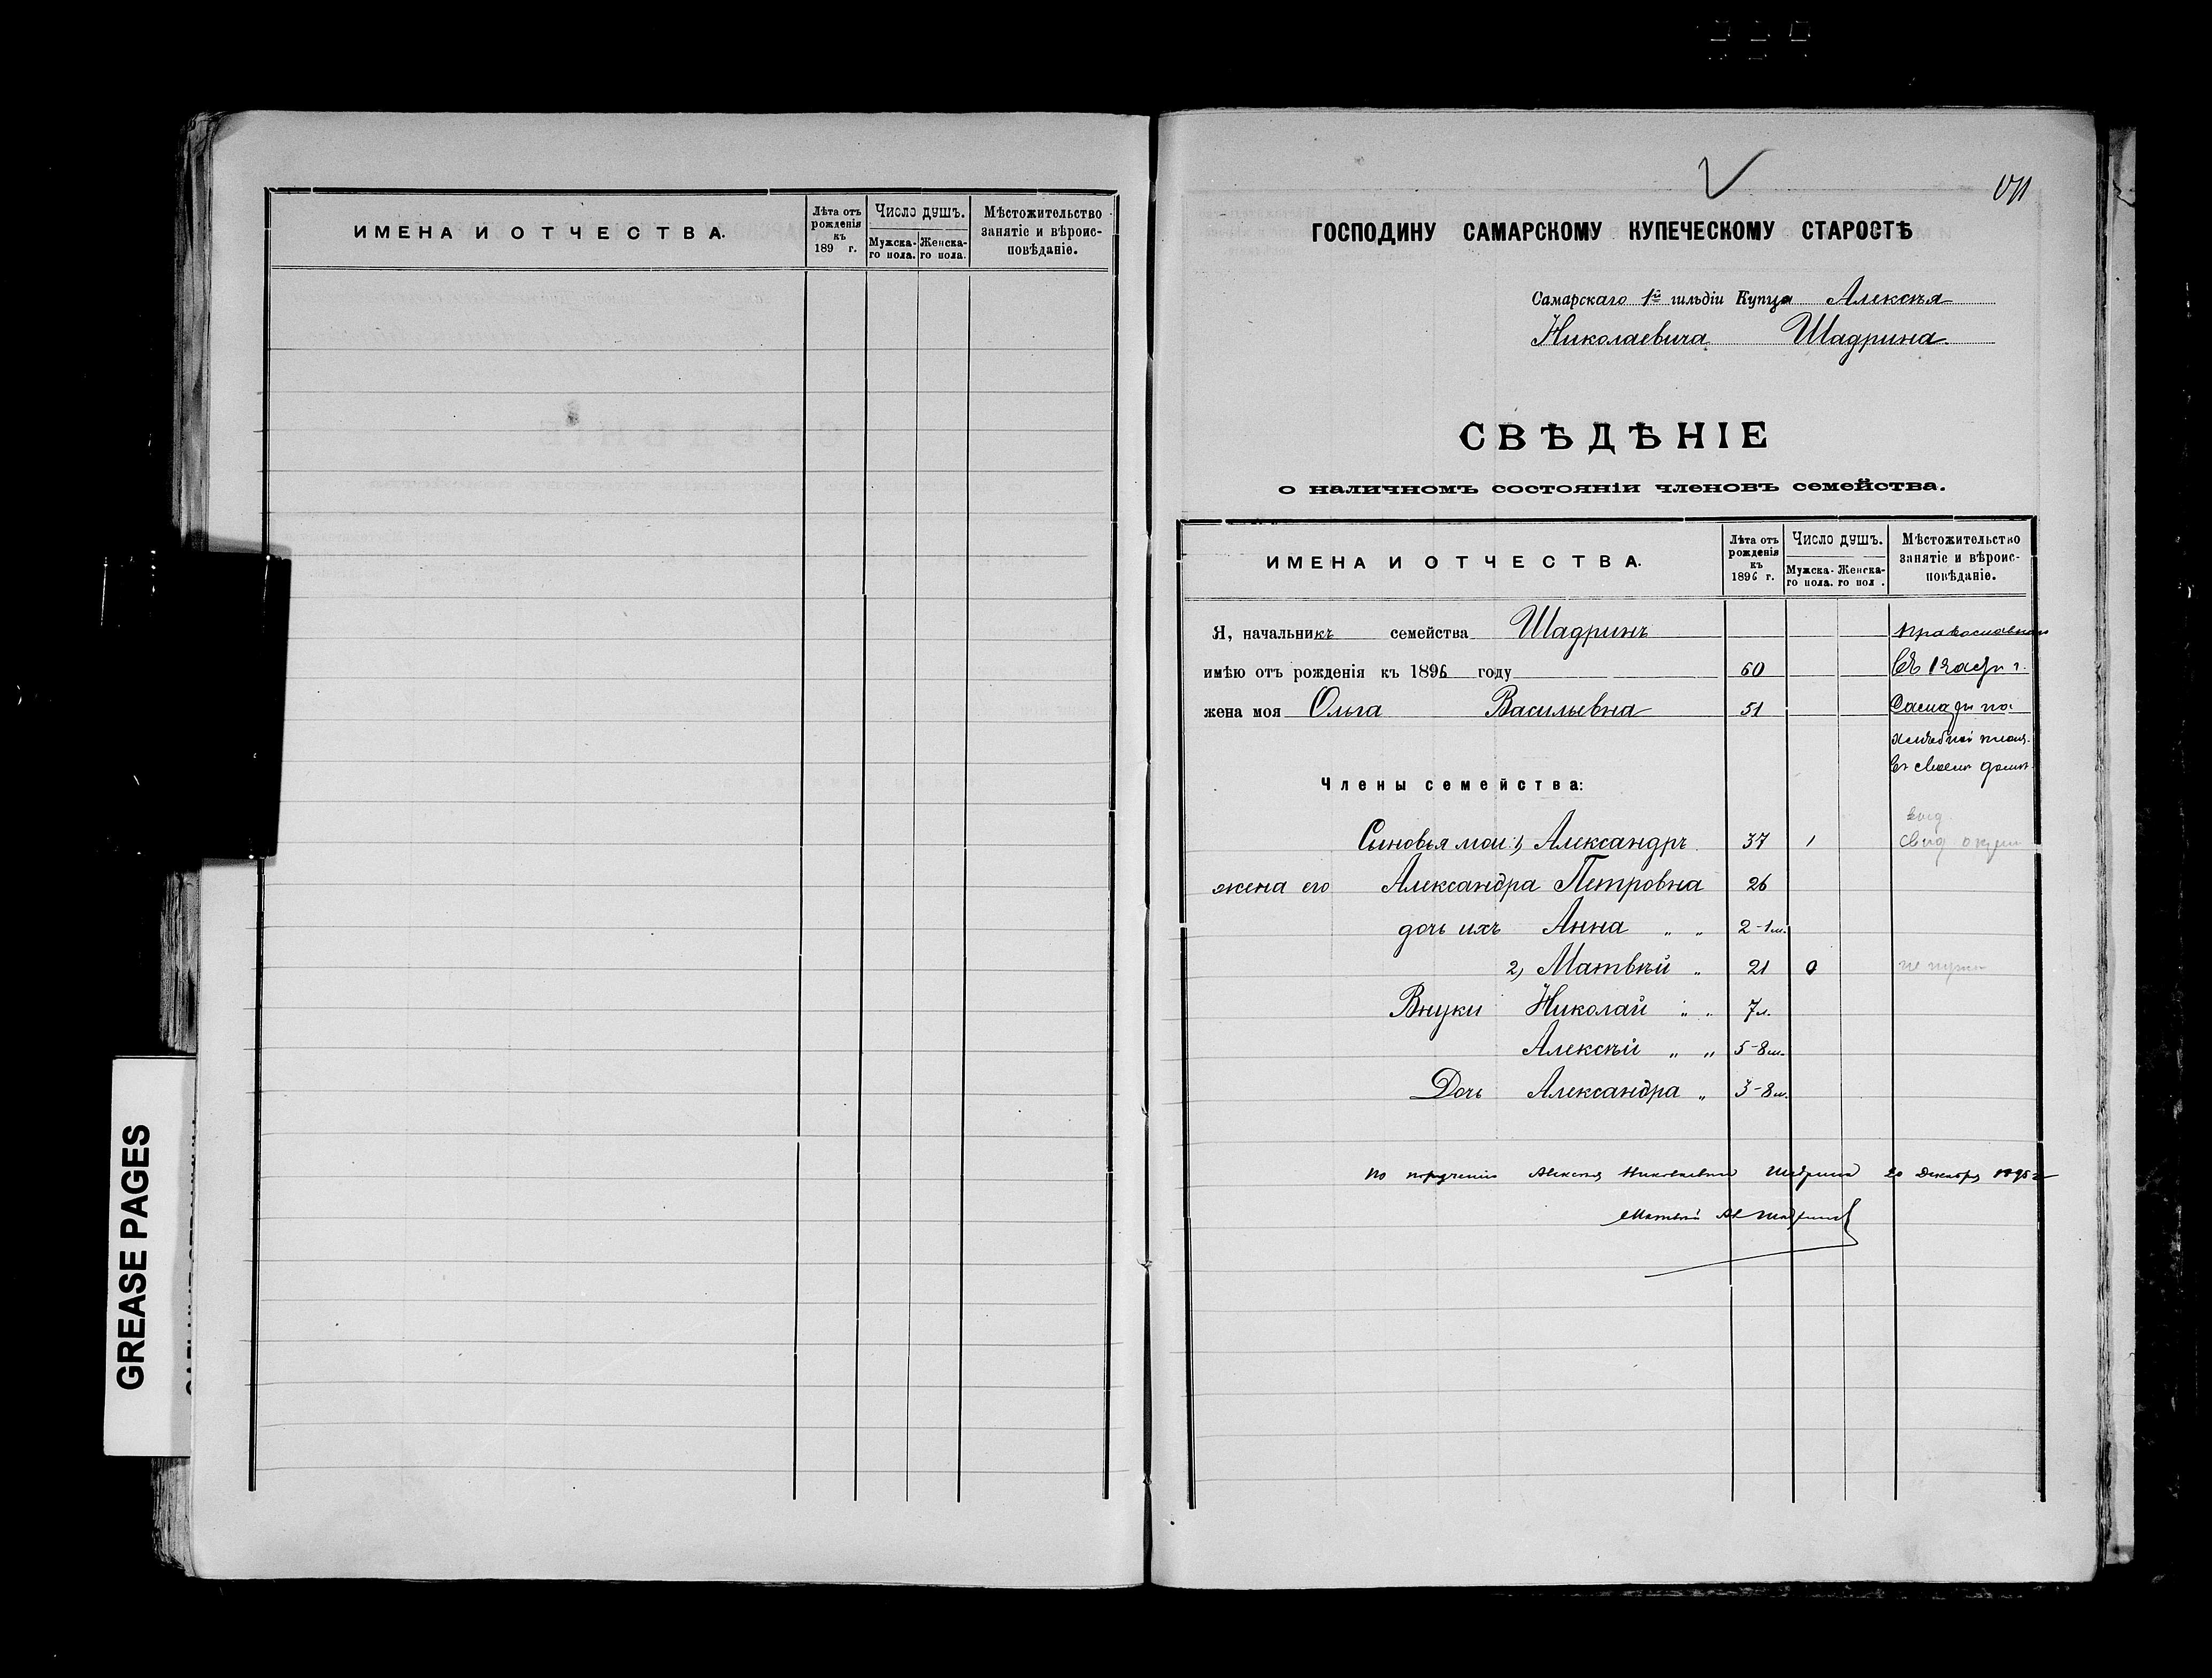 ИМЕНА И ОТЧЕСТВА.
Лѣта отъ рожденія къ 189 г.
Число душъ.
Мужска-го пола.
Женска-го пола.
Мѣстожительство занятіе и вѣроис-повѣданіе.
GREASE PAGES
ГОСПОДИНУ САМАРСКОМУ КУПЕЧЕСКОМУ СТАРОСТѢ
Самарскаго 1й гильдіи Купца Алексѣя
Николаевича Шадрина
СВѢДѢНІЕ
о наличномъ состояніи членовъ семейства.
ИМЕНА И ОТЧЕСТВА.
Лѣта отъ рожденія къ 1896 г.
Число душъ.
Мужска-го пола.
Женска-го пол .
Мѣстожительство занятіе и вѣроис-повѣданіе.
Я, начальникъ семейства Шадринъ
имѣю отъ рожденія къ 1896 году 60
жена моя Ольга Васильевна 51
хлѣбной площ.
въ своемъ домѣ
Члены семейства:
Сыновья мои: 1, Александръ 37 1
жена его Александра Петровна 26
дочь ихъ Анна „ „ 2-1м.
2, Матвѣй „ 21 0
Внуки Николай „ „ 7л.
Алексѣй „ „ 5-8м.
Дочь Александра „ 3-8м.
По порученію Алексѣя Николаевича Шадрина 20 Декабря 1895 г
Матвѣй Ал Шадринъ